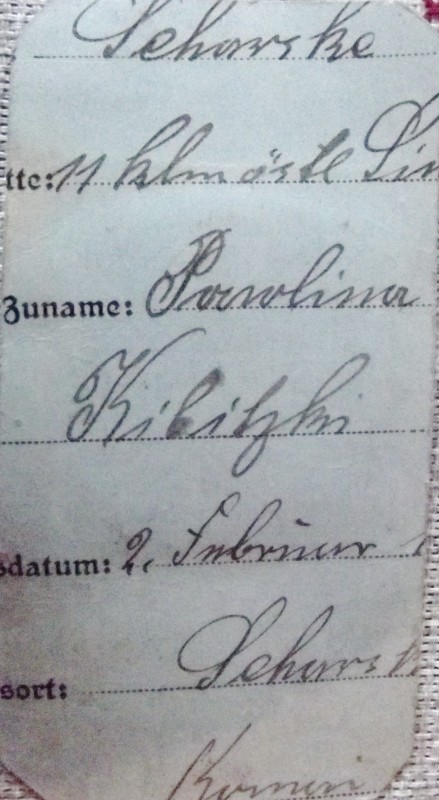 Scharske
tte: 11 klm östl
Zuname: Pawlina
Kibitzki
sdatum: 2. Februar
sort: Schars